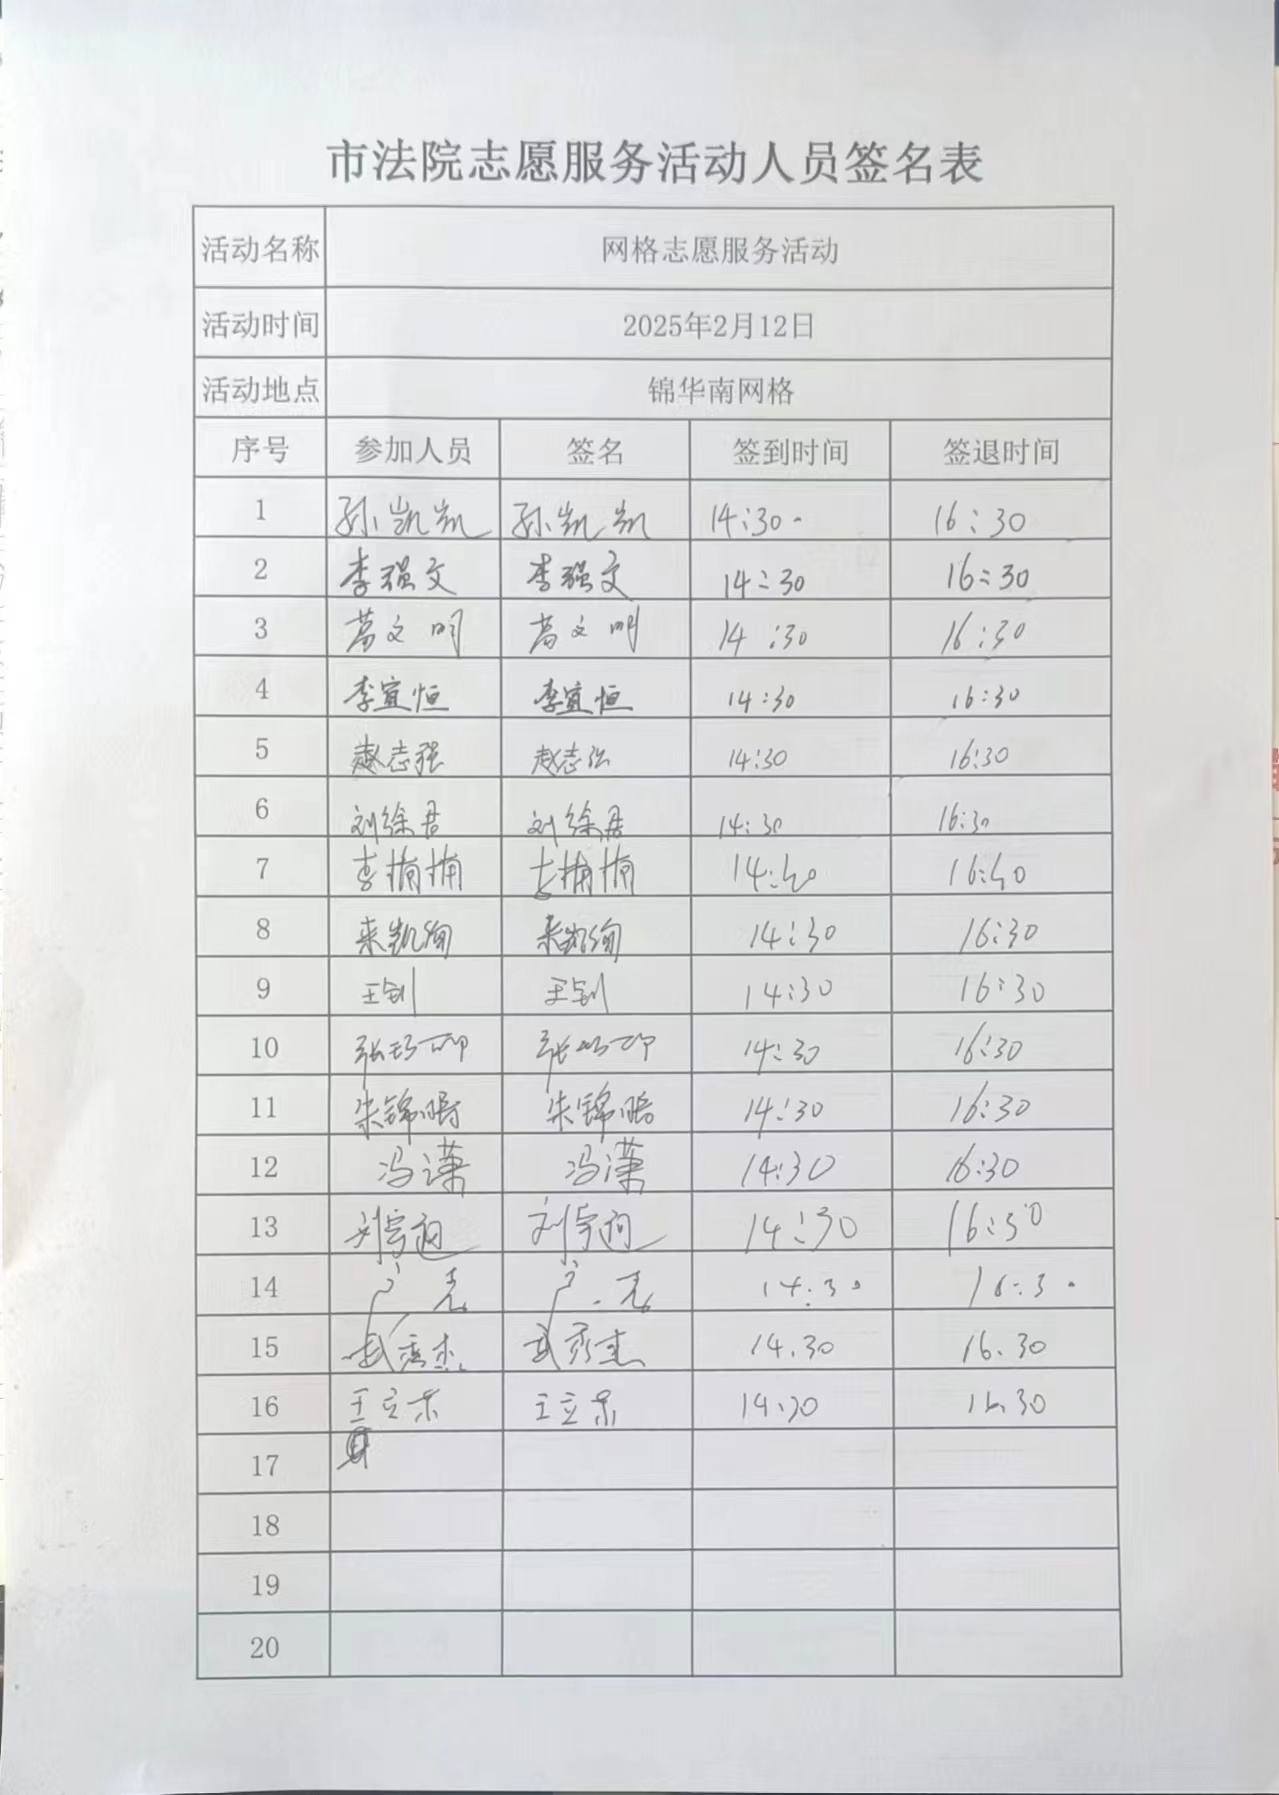 市法院志愿服务活动人员签名表
活动名称 网格志愿服务活动
活动时间 2025年2月12日
活动地点 锦华南网格
序号 参加人员 签名 签到时间 签退时间
1 孙凯凯 孙凯凯 14:30 16:30
2 李强文 李强文 14:30 16:30
3 葛文明 葛文明 14:30 16:30
4 李宜恒 李宜恒 14:30 16:30
5 赵志强 赵志强 14:30 16:30
6 刘徐君 刘徐君 14:30 16:30
7 李楠楠 李楠楠 14:30 16:30
8 来凯 来凯 14:30 16:30
9 王钊 王钊 14:30 16:30
10 张 张 14:30 16:30
11 朱锦 朱锦 14:30 16:30
12 冯潇 冯潇 14:30 16:30
13 刘宇 刘宇 14:30 16:30
14 14:30 16:30
15 武秀杰 武秀杰 14.30 16.30
16 王立东 王立东 14.30 16.30
17
18
19
20